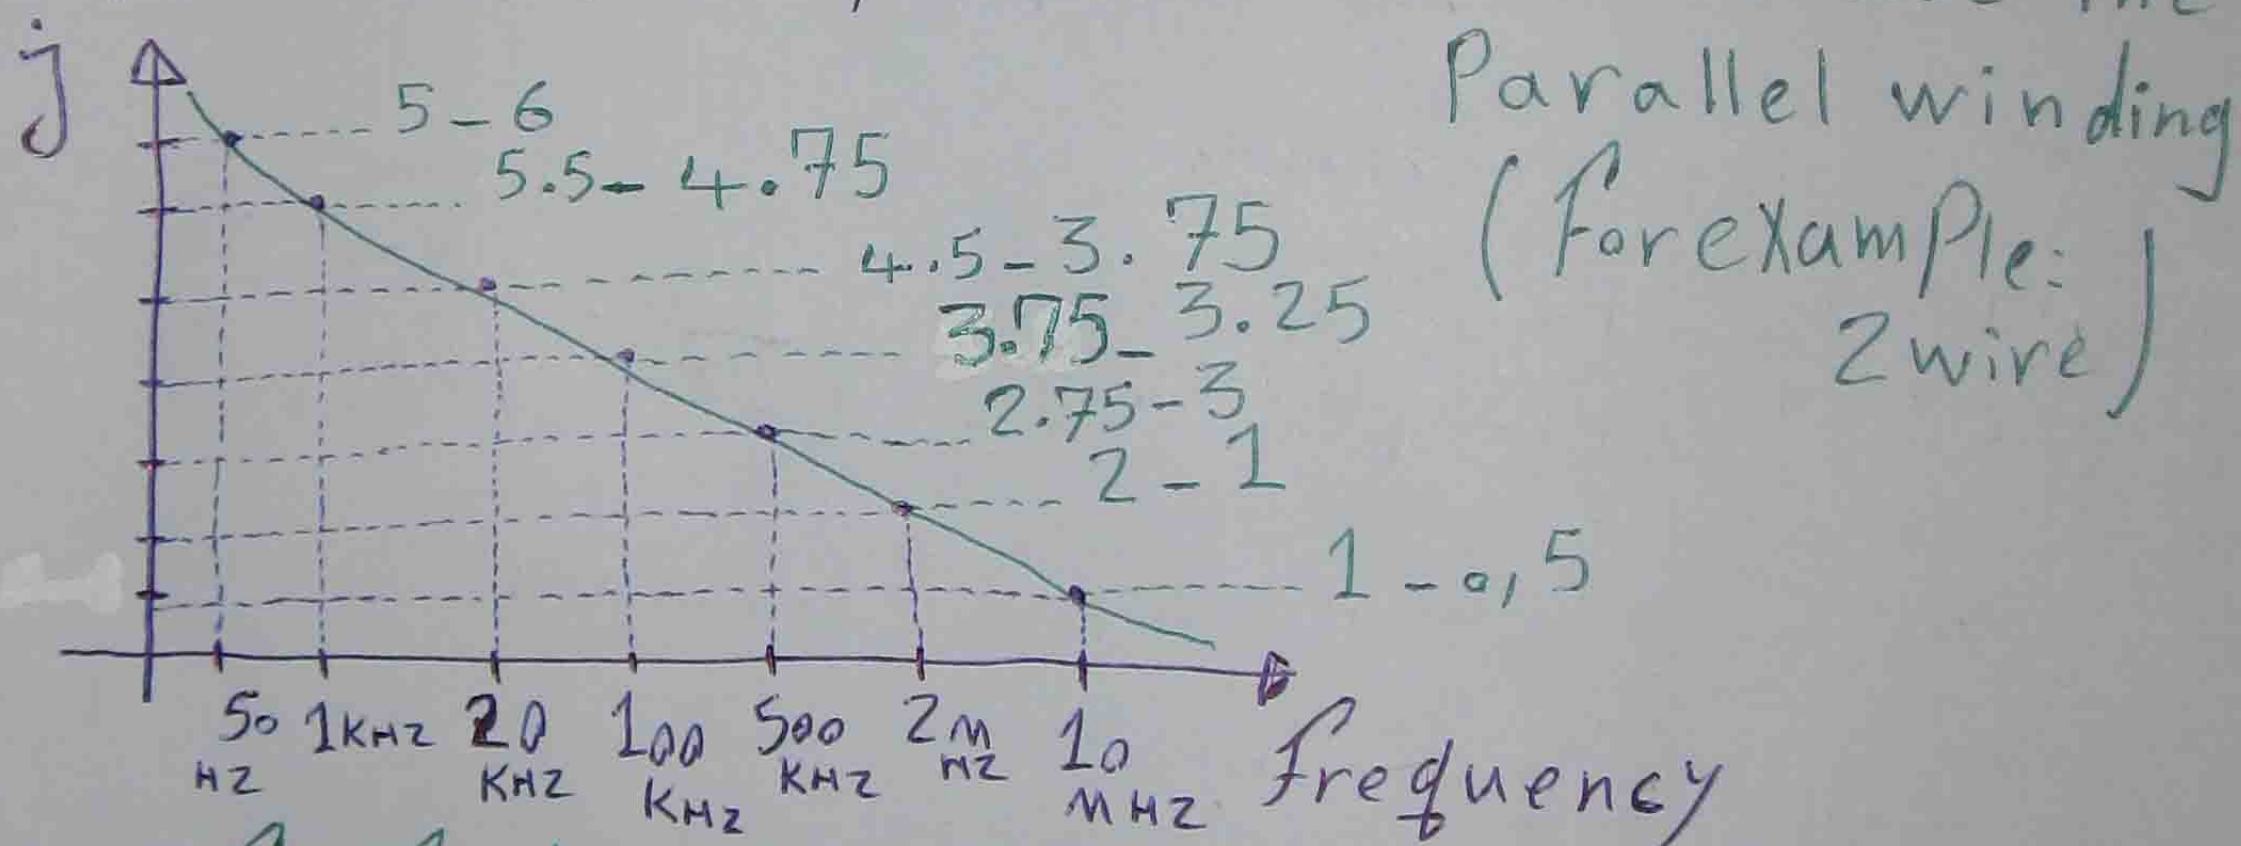 j
5-6
5.5-4.75
4.5-3.75
3.75-3.25
2.75-3
2-1
1-0,5
Parallel winding
(For example:
2wire)
50 Hz
1KHz
20 KHz
100 KHz
500 KHz
2M Hz
10 MHz
frequency